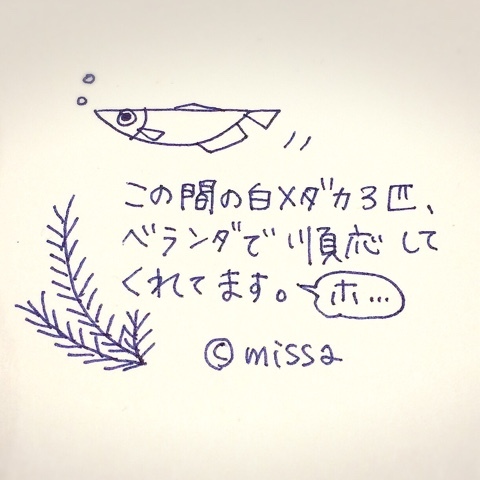 この間の白メダカ3匹、
ベランダで順応して
くれてます。
ホ…
©missa